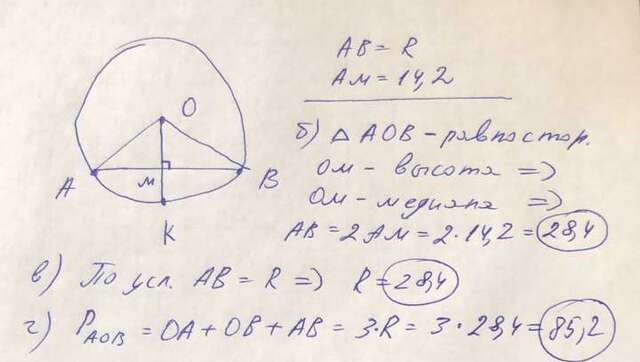 AB = R
AM = 14,2
O
A
M
B
K
б) △ AOB – равностор.
OM – высота =>
OM – медиана =>
AB = 2AM = 2·14,2 = 28,4
в) По усл. AB = R => R = 28,4
г) P_AOB = OA + OB + AB = 3·R = 3·28,4 = 85,2